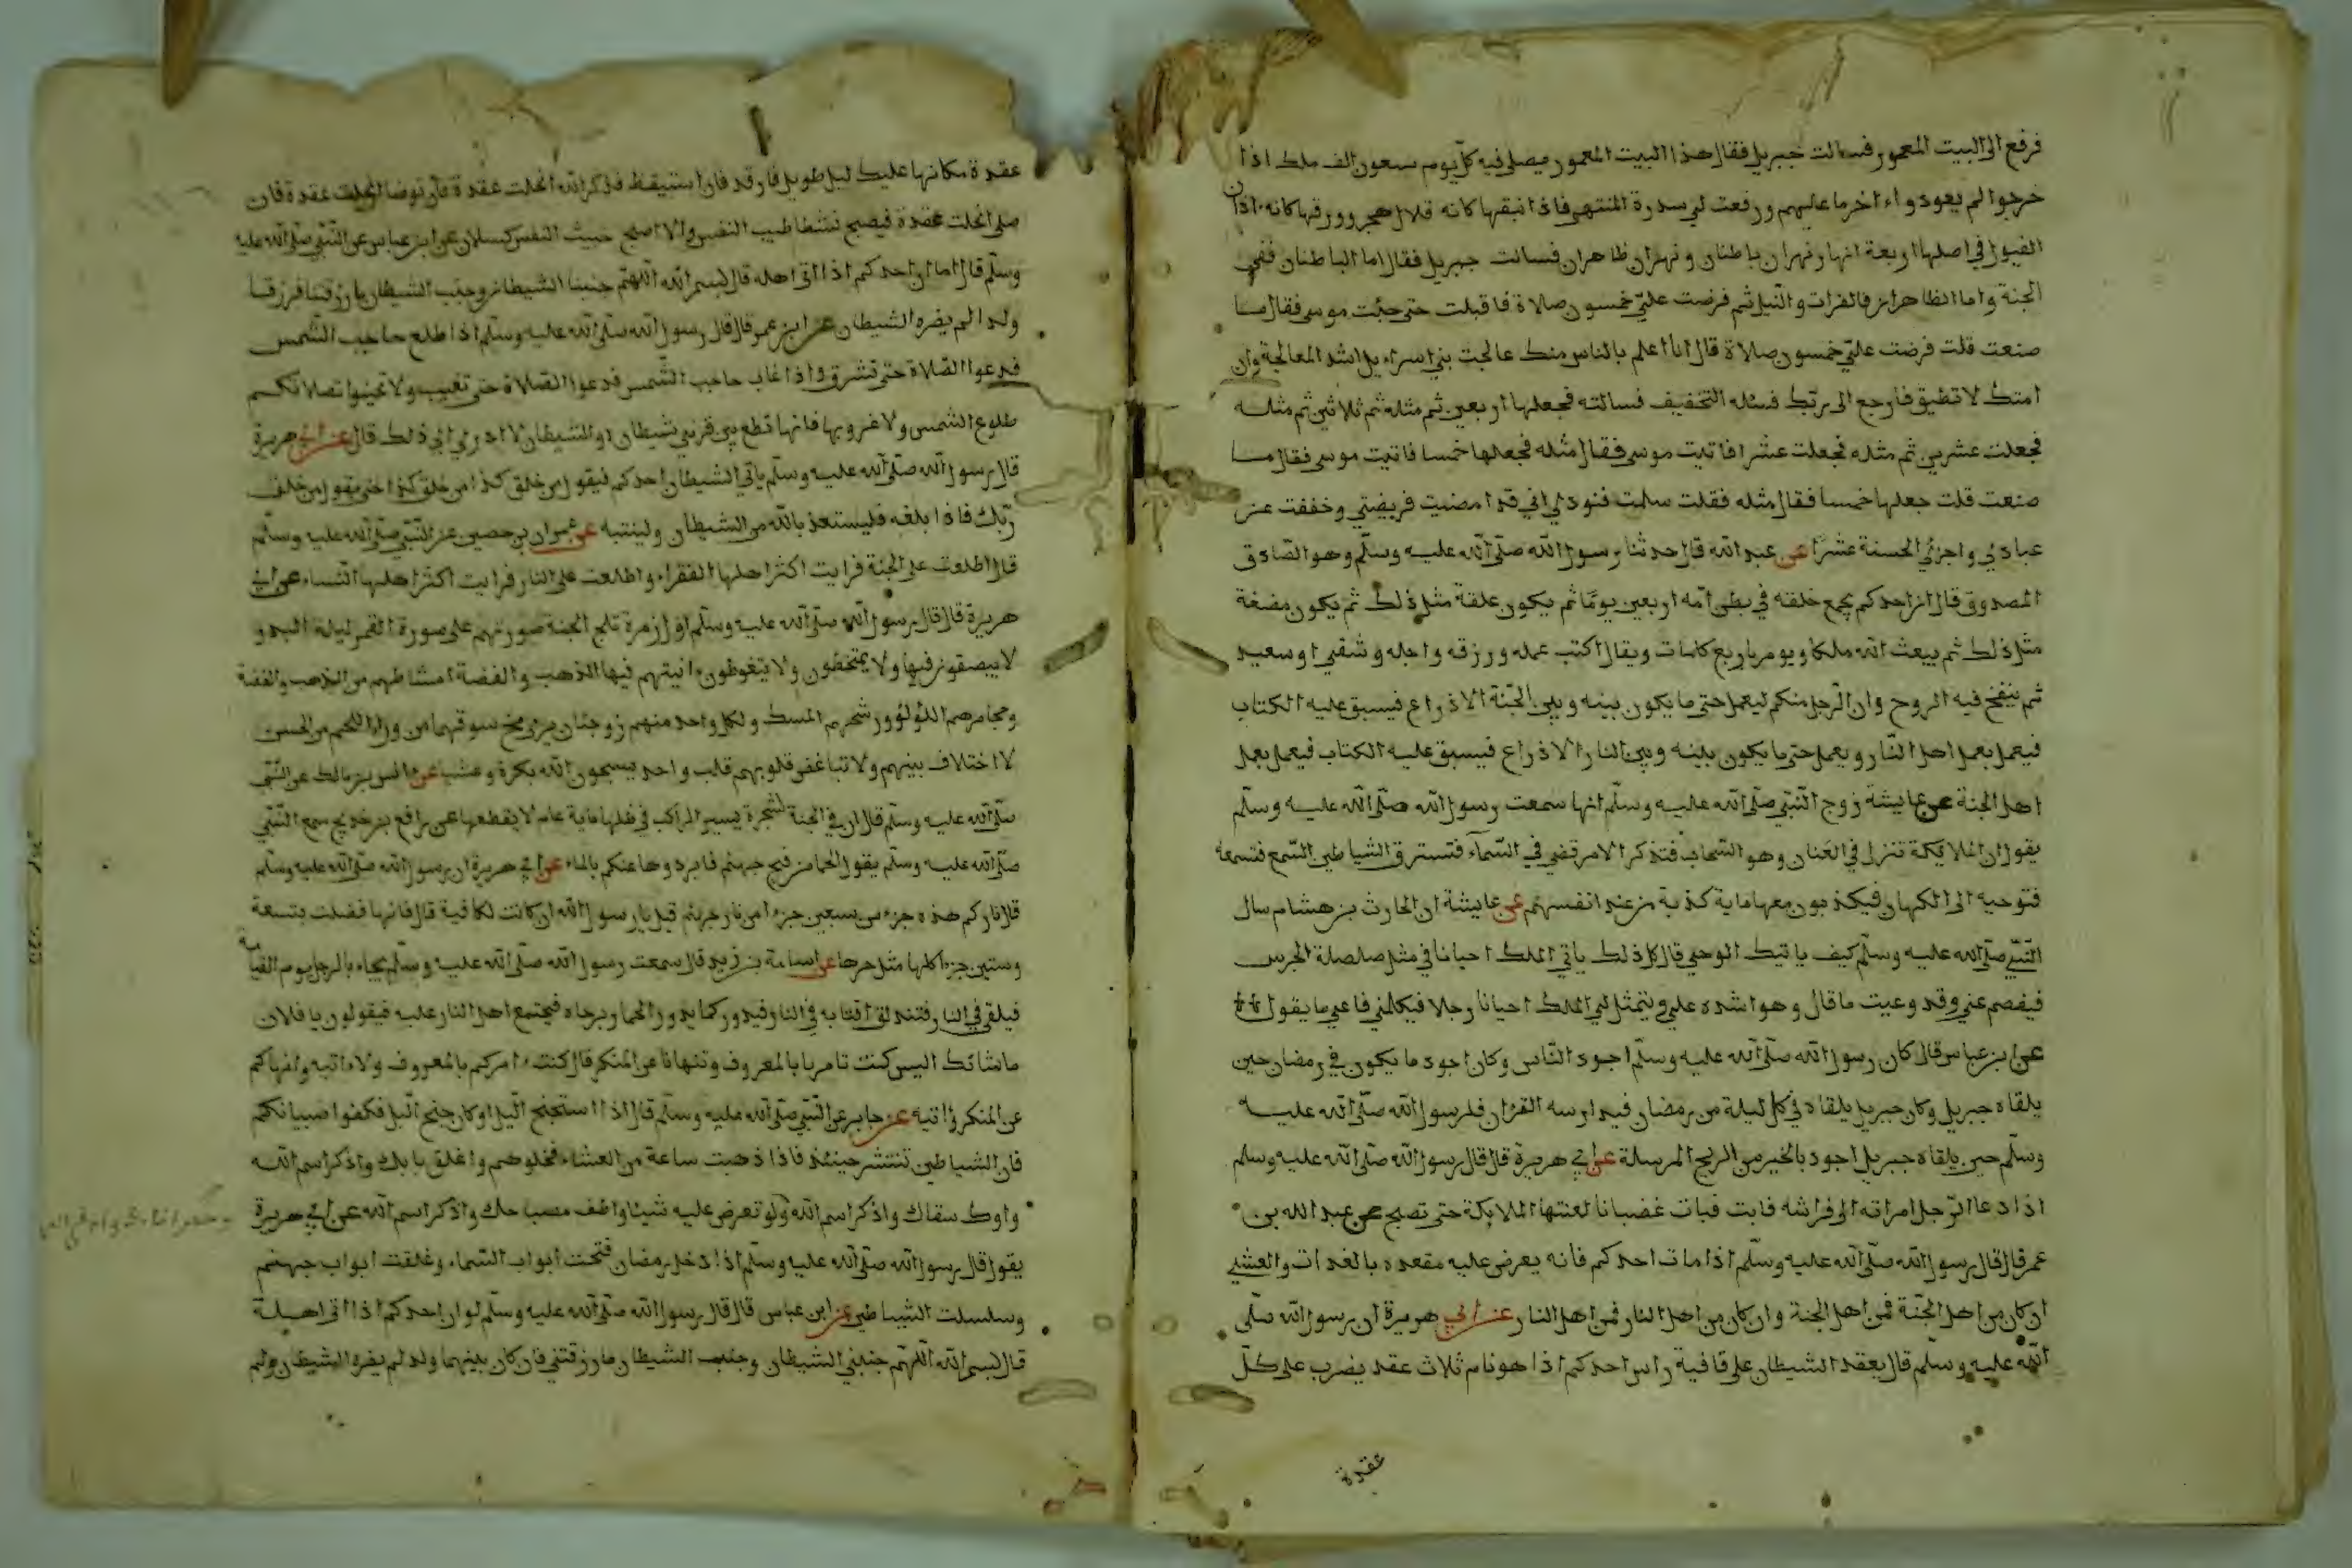 فرفع الى البيت المعمور فسالت جبريل فقال هذا البيت المعمور يصلي فيه كل يوم سبعون الف ملك اذا
خرجوا لم يعودوا ءاخر ما عليهم ورفعت لي سدرة المنتهى فاذا نبقها كانه قلال هجر وورقها كانه اذان
الفيول في اصلها اربعة انهار نهران باطنان ونهران ظاهران فسالت جبريل فقال اما الباطنان ففي
الجنة واما الظاهران فالفرات والنيل ثم فرضت علي خمسون صلاة فاقبلت حتى جئت موسى فقال ما
صنعت قلت فرضت علي خمسون صلاة قال انا اعلم بالناس منك عالجت بني اسراءيل اشد المعالجة وان
امتك لا تطيق فارجع الى ربك فسئله التخفيف فسالته فجعلها اربعين ثم مثله ثم ثلاثين ثم مثله
فجعلت عشرين ثم مثله فجعلت عشرا فاتيت موسى فقال مثله فجعلها خمسا فاتيت موسى فقال ما
صنعت قلت جعلها خمسا فقال مثله فقلت سلمت فنودي اني قد امضيت فريضتي وخففت عن
عبادي واجزي الحسنة عشرا عن عبد الله قال حدثنا رسول الله صلى الله عليه وسلم وهو الصادق
المصدوق قال ان احدكم يجمع خلقه في بطن امه اربعين يوما ثم يكون علقة مثل ذلك ثم يكون مضغة
مثل ذلك ثم يبعث الله ملكا ويومر باربع كلمات ويقال اكتب عمله ورزقه واجله وشقي او سعيد
ثم ينفخ فيه الروح وان الرجل منكم ليعمل حتى ما يكون بينه وبين الجنة الا ذراع فيسبق عليه الكتاب
فيعمل بعمل اهل النار ويعمل حتى ما يكون بينه وبين النار الا ذراع فيسبق عليه الكتاب فيعمل بعمل
اهل الجنة عن عايشة زوج النبي صلى الله عليه وسلم انها سمعت رسول الله صلى الله عليه وسلم
يقول ان الملايكة تنزل في العنان وهو السحاب فتذكر الامر قضي في السماء فتسترق الشياطين السمع فتسمعه
فتوحيه الى الكهان فيكذبون معها ماية كذبة من عند انفسهم عن عايشة ان الحارث بن هشام سال
النبي صلى الله عليه وسلم كيف ياتيك الوحي قال كل ذلك ياتي الملك احيانا في مثل صلصلة الجرس
فيفصم عني وقد وعيت ما قال وهو اشده علي ويتمثل لي الملك احيانا رجلا فيكلمني فاعي ما يقول
عن ابن عباس قال كان رسول الله صلى الله عليه وسلم اجود الناس وكان اجود ما يكون في رمضان حين
يلقاه جبريل وكان جبريل يلقاه في كل ليلة من رمضان فيدارسه القرءان فلرسول الله صلى الله عليه
وسلم حين يلقاه جبريل اجود بالخير من الريح المرسلة عن ابي هريرة قال قال رسول الله صلى الله عليه وسلم
اذا دعا الرجل امراته الى فراشه فابت فبات غضبانا لعنتها الملايكة حتى تصبح عن عبد الله بن
عمر قال قال رسول الله صلى الله عليه وسلم اذا مات احدكم فانه يعرض عليه مقعده بالغدات والعشي
ان كان من اهل الجنة فمن اهل الجنة وان كان من اهل النار فمن اهل النار عن ابي هريرة ان رسول الله صلى
الله عليه وسلم قال يعقد الشيطان على قافية راس احدكم اذا هو نام ثلاث عقد يضرب على كل
عقدة
عقدة مكانها عليك ليل طويل فارقد فان استيقظ فذكر الله انحلت عقدة فان توضا انحلت عقدة فان
صلى انحلت عقدة فيصبح نشطا طيب النفس والا اصبح خبيث النفس كسلان عن ابن عباس عن النبي صلى الله عليه
وسلم قال اما ان احدكم اذا اتى اهله قال بسم الله اللهم جنبنا الشيطان وجنب الشيطان ما رزقتنا فرزقا
ولدا لم يضره الشيطان عن ابن عمر قال قال رسول الله صلى الله عليه وسلم اذا طلع حاجب الشمس
فدعوا الصلاة حتى تشرق واذا غاب حاجب الشمس فدعوا الصلاة حتى تغيب ولا تحينوا بصلاتكم
طلوع الشمس ولا غروبها فانها تطلع بين قرني شيطان او للشيطان لا ادري اي ذلك قال عن ابي هريرة
قال رسول الله صلى الله عليه وسلم ياتي الشيطان احدكم فيقول من خلق كذا من خلق كذا حتى يقول من خلق
ربك فاذا بلغه فليستعذ بالله من الشيطان ولينتبه عن عمران بن حصين عن النبي صلى الله عليه وسلم
قال اطلعت على الجنة فرايت اكثر اهلها الفقراء واطلعت على النار فرايت اكثر اهلها النساء عن ابي
هريرة قال قال رسول الله صلى الله عليه وسلم اول زمرة تلج الجنة صورتهم على صورة القمر ليلة البدر
لا يبصقون فيها ولا يمتخطون ولا يتغوطون ءانيتهم فيها الذهب والفضة امشاطهم من الذهب والفضة
ومجامرهم اللؤلؤ ورشحهم المسك ولكل واحد منهم زوجتان يرى مخ سوقهما من وراء اللحم من الحسن
لا اختلاف بينهم ولا تباغض قلوبهم قلب واحد يسبحون الله بكرة وعشيا عن انس بن مالك عن النبي
صلى الله عليه وسلم قال ان في الجنة لشجرة يسير الراكب في ظلها ماية عام لا يقطعها عن رافع بن خديج سمع النبي
صلى الله عليه وسلم يقول الحما من فيح جهنم فابردوها عنكم بالماء عن ابي هريرة ان رسول الله صلى الله عليه وسلم
قال ناركم هذه جزء من سبعين جزءا من نار جهنم قيل يا رسول الله ان كانت لكافية قال فانها فضلت بتسعة
وستين جزءا كلها مثل حرها عن اسامة بن زيد قال سمعت رسول الله صلى الله عليه وسلم يجاء بالرجل يوم القيامة
فيلقى في النار فتندلق اقتابه في النار فيدور كما يدور الحمار برحاه فيجتمع اهل النار عليه فيقولون يا فلان
ما شانك اليس كنت تامرنا بالمعروف وتنهانا عن المنكر قال كنت ءامركم بالمعروف ولا ءاتيه وانهاكم
عن المنكر وءاتيه عن جابر عن النبي صلى الله عليه وسلم قال اذا استجنح اليل او كان جنح اليل فكفوا صبيانكم
فان الشياطين تنتشر حينئذ فاذا ذهبت ساعة من العشاء فخلوهم واغلق بابك واذكر اسم الله
واوك سقاك واذكر اسم الله ولو تعرض عليه شيئا واطف مصباحك واذكر اسم الله عن ابي هريرة
يقول قال رسول الله صلى الله عليه وسلم اذا دخل رمضان فتحت ابواب السماء وغلقت ابواب جهنم
وسلسلت الشياطين عن ابن عباس قال قال رسول الله صلى الله عليه وسلم لو ان احدكم اذا اتى اهله
قال بسم الله اللهم جنبني الشيطان وجنب الشيطان ما رزقتني فان كان بينهما ولد لم يضره الشيطان ولم